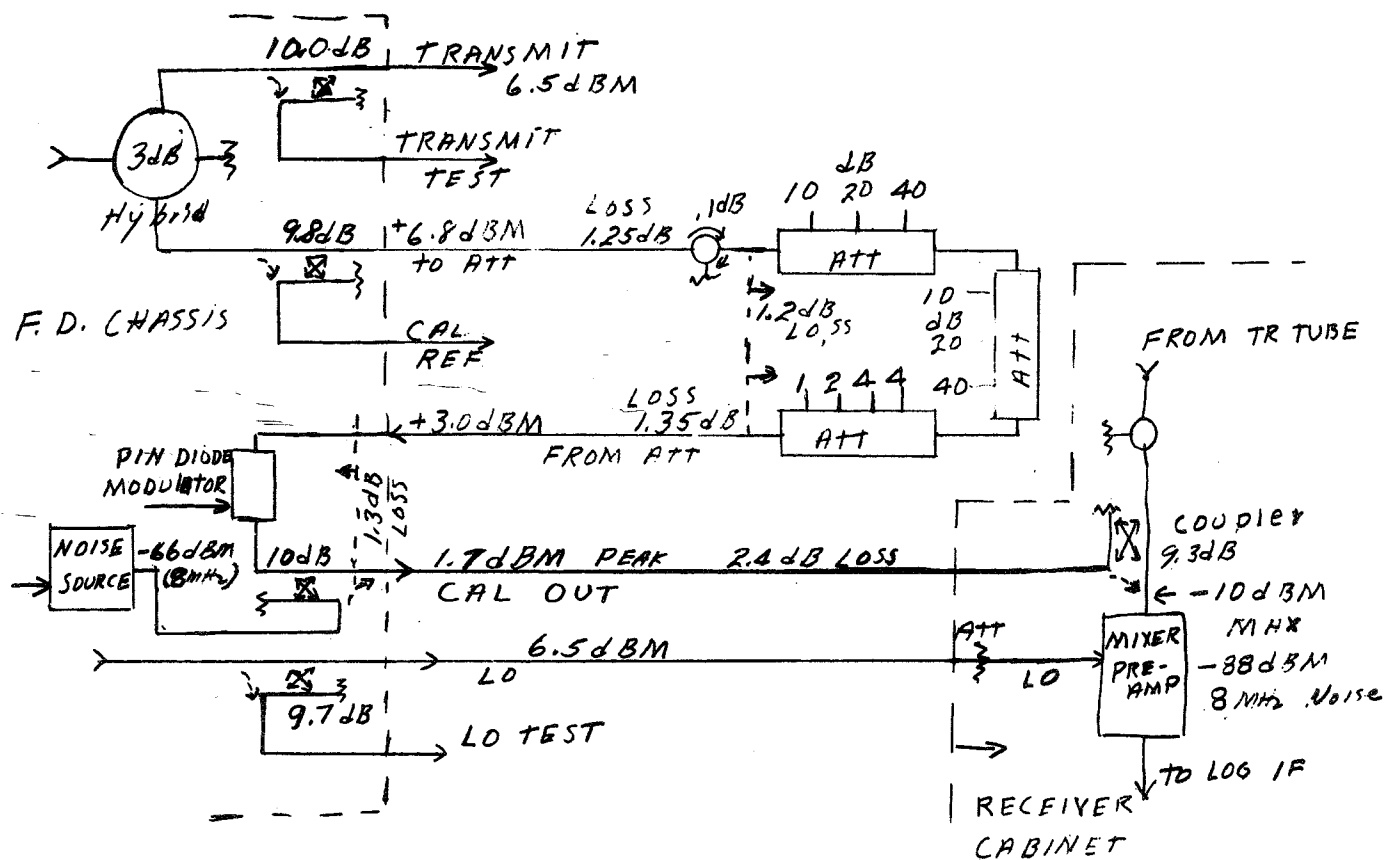 10.0 dB
TRANSMIT
6.5 dBM
3dB
Hybrid
TRANSMIT
TEST
9.8dB
+6.8 dBM
to Att
LOSS
1.25dB
.1dB
dB
10 20 40
Att
F. D. CHASSIS
CAL
REF
1.2dB
LOSS
10
dB
20
40
Att
FROM TR TUBE
1 2 4 4
Att
+3.0 dBM
LOSS
1.35dB
FROM Att
PIN DIODE
MODULATOR
1.3dB
LOSS
NOISE
SOURCE
-66dBm
(8MHz)
10dB
1.7dBM PEAK
2.4 dB LOSS
CAL OUT
COUPLER
9.3dB
-10dBM
MAX
MIXER
PRE-
AMP
-88dBM
8 MHz Noise
6.5 dBM
LO
Att
LO
9.7 dB
LO TEST
TO LOG IF
RECEIVER
CABINET